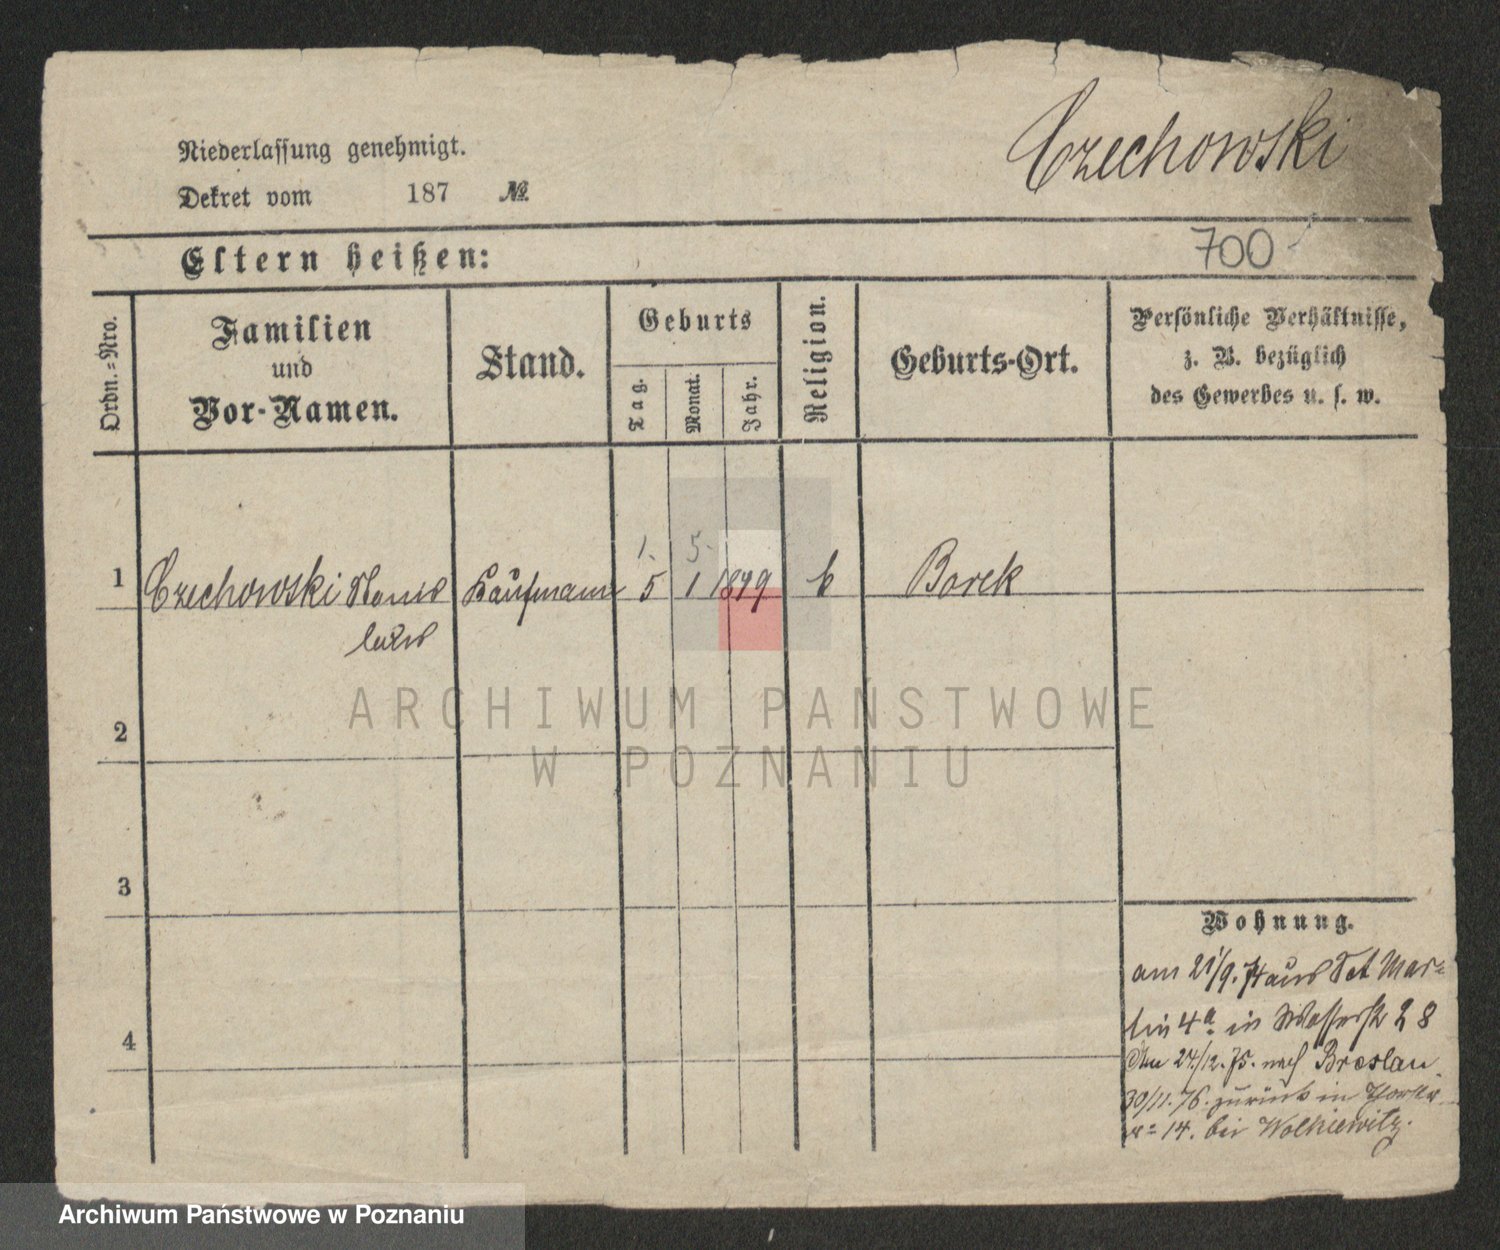 Czechowski
Niederlassung genehmigt.
Dekret vom 187 №
700
Eltern heißen:
Ordn.-Nro.
Familien
und
Vor-Namen.
Stand.
Geburts
Tag.
Monat.
Jahr.
Religion.
Geburts-Ort.
Persönliche Verhältnisse,
z. B. bezüglich
des Gewerbes u. s. w.
1. 5.
1 Czechowski Stanis Kaufmann 5 1 1849 k Borek
laus
2
3
4
Wohnung.
am 21/9. 74 aus Sct Mar-
tin 4a in Wasserstr 28
Am 24/12. 75. nach Breslau
30/11. 76. zurück in
14. bei Wolkiewitz.
ARCHIWUM PAŃSTWOWE
W POZNANIU
Archiwum Państwowe w Poznaniu